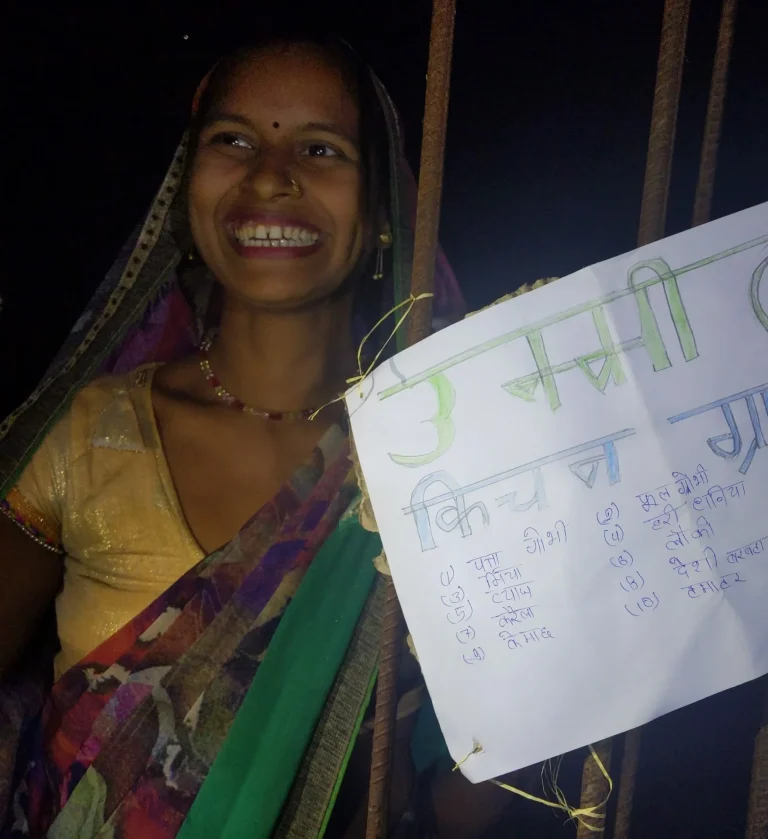 किचन
(1) पत्ता गोभी (2) फूल गोभी
(3) मिर्चा (4) हरी धनिया
(5) प्याज (6) लौकी
(7) करैला (8) देशी
(9) केमाछ (10) टमाटर